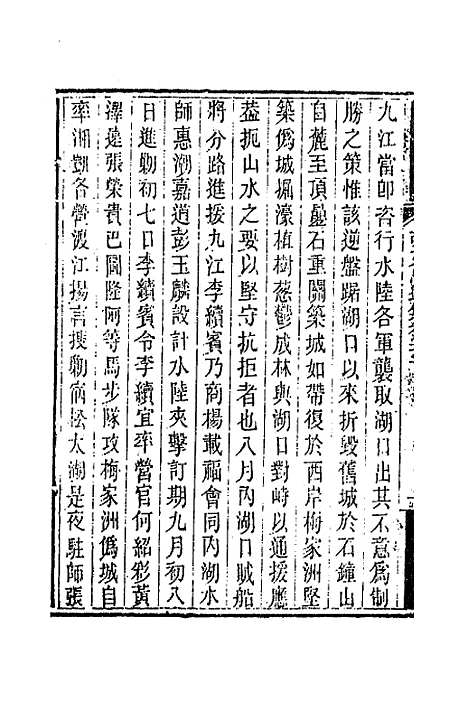 九江當卽咨行水陸各軍襲取湖口出其不意爲制
勝之策惟該逆盤踞湖口以來折毀舊城於石鐘山
自麓至頂壘石重關築城如帶復於西岸梅家洲堅
築僞城掘濠植樹蔥鬱成林與湖口對峙以通援應
葢扼山水之要以堅守抗拒者也八月內湖口賊船
將分路進援九江李續賓乃商楊載福會同內湖水
師惠潮嘉道彭玉麟設計水陸夾擊訂期九月初八
日進勦初七日李續賓令李續宜率營官何紹彩黃
澤遠張榮貴巴圖隆阿等馬步隊攻梅家洲僞城自
率湘勇各營渡江揚言搜勦宿松太湖是夜駐師張